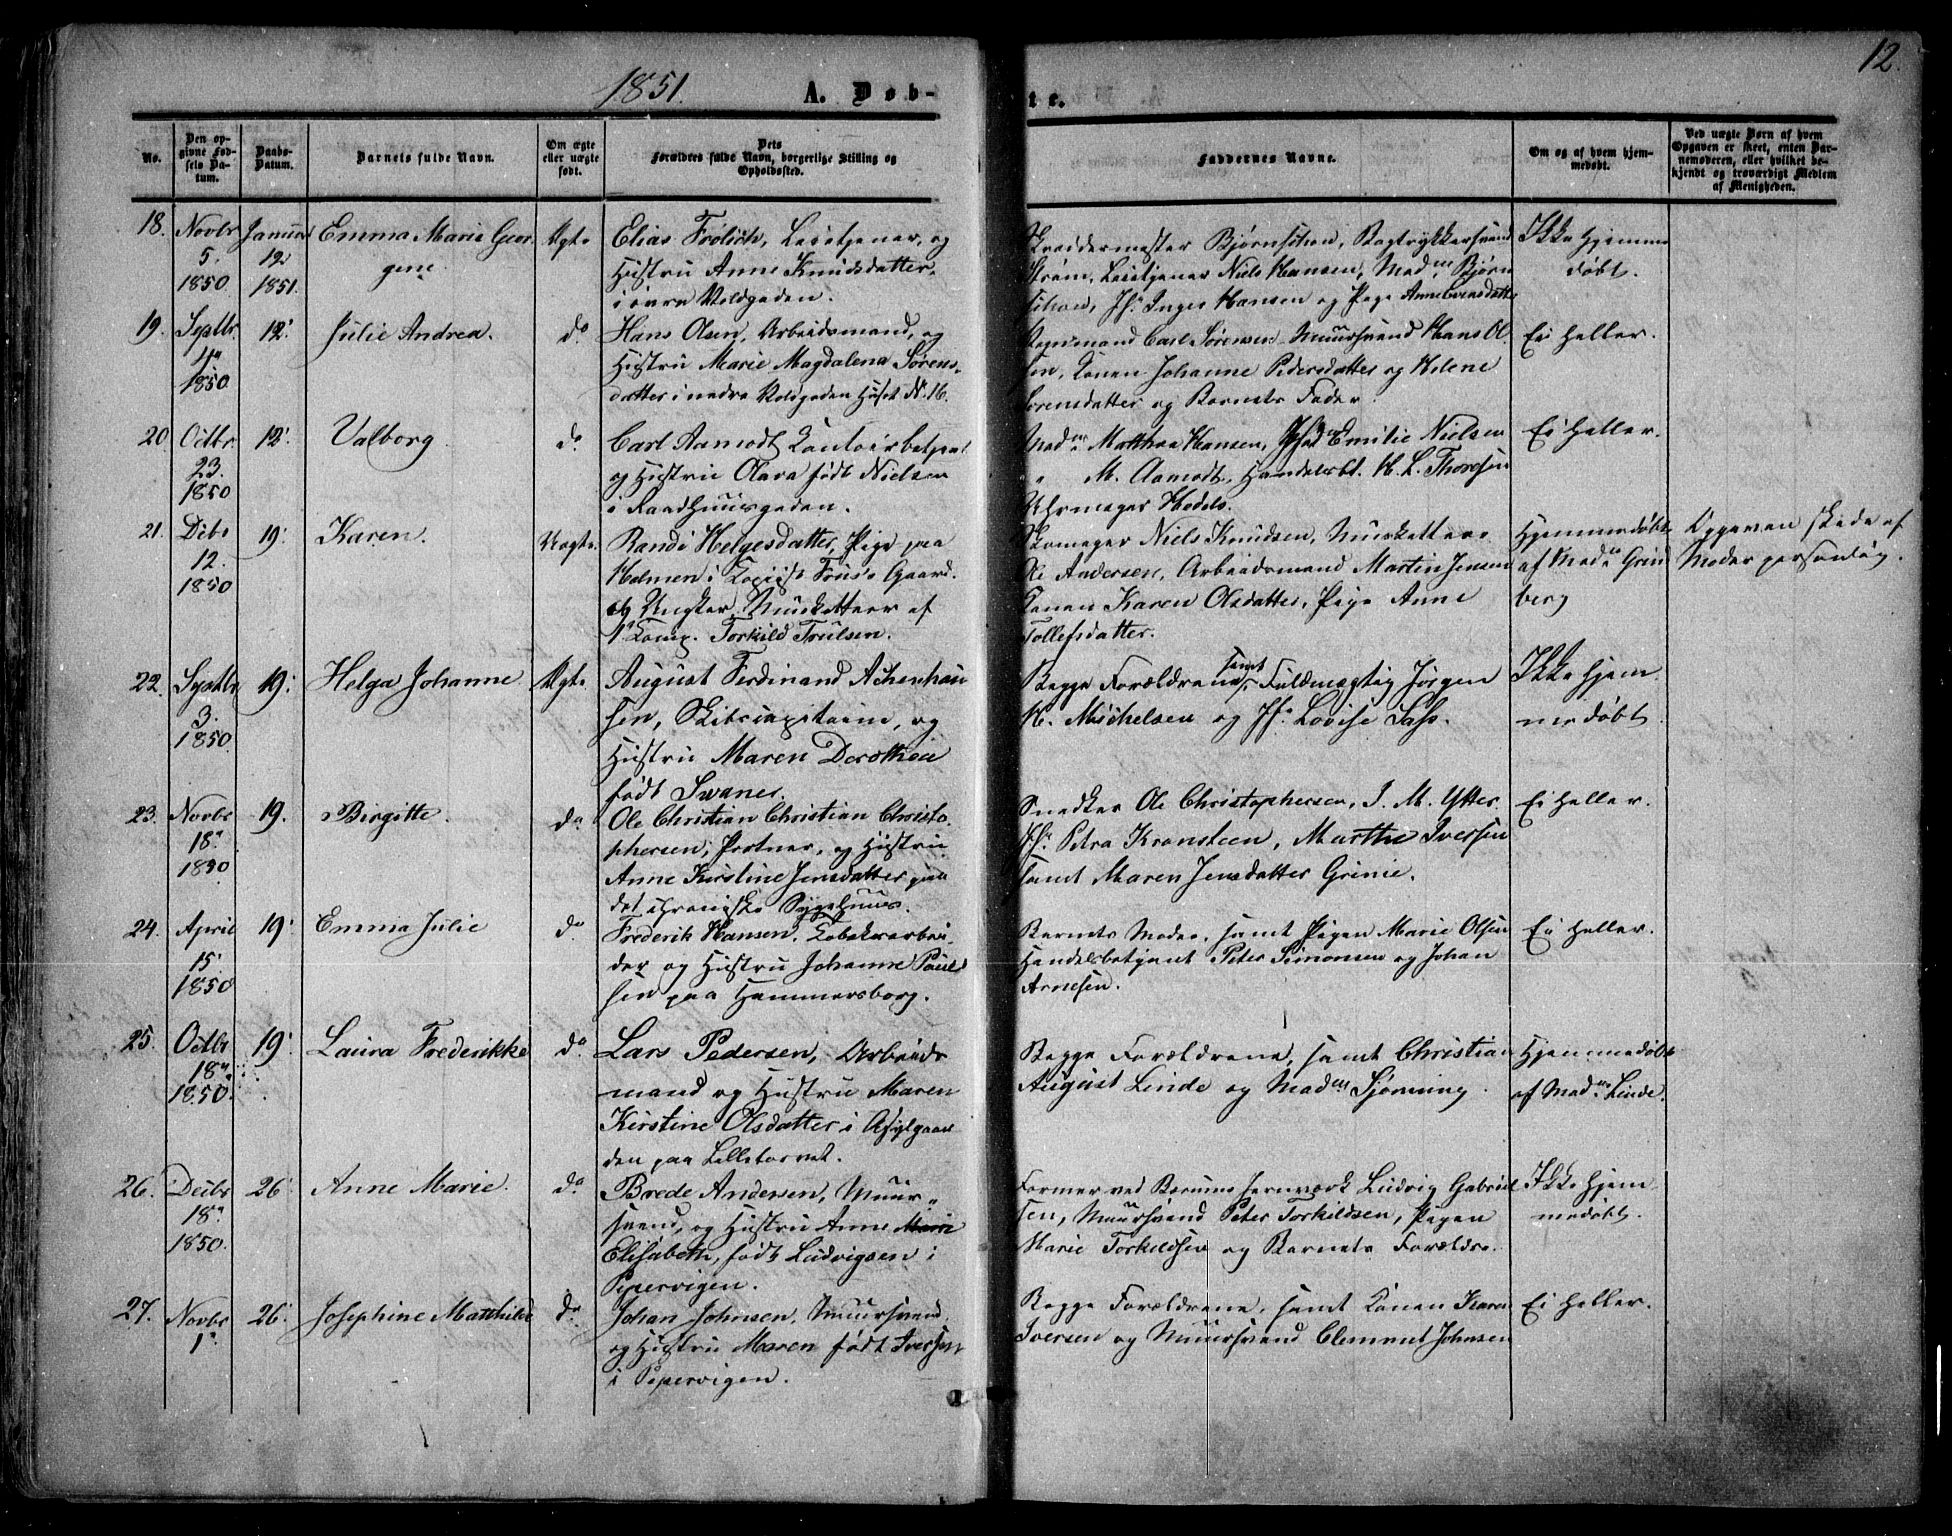 12.
1851.
A. Døb-
te.
No.
Den op-
givne Fød-
sels Da-
tum.
Daabs-
Datum.
Barnets fulde Navn.
Om ægte
eller uægte
født.
Dets
Forældres fulde Navn, borgerlige Stilling og
Opholdssted.
Faddernes Navne.
Om og af hvem hjem-
medøbt.
Ved uægte Børn af hvem
Opgaven er skeet, enten Bar-
nemoderen, eller hvilket be-
kjendt og troværdigt Medlem
af Menigheden.
18.
Novbr
5.
1850
Januar
12.
1851.
Emma Marie Geor-
gene.
Ægte
Elias Frölich, Leietjener, og
Hustru Anne Knudsdatter,
i øvre Voldgaden.
Skræddermester Bjørnsthon, Bogtrykkersvend
Strøm, Leietjener Niels Hansen, Mad. Bjørn
sthon, Jfr. Inger Hansen og Pige Anne Evensdatter
Ikke hjemme
døbt.
19.
Septbr.
4
1850
12.
Julie Andrea.
do
Hans Olsen, Arbeidsmand, og
Hustru Marie Magdalena Sørens-
datter i nedre Voldgaden Huset No. 16.
Vognmand Carl Sørensen, Muursvend Hans Ol
sen, Konen Johanne Pedersdatter og Helene
Sørensdatter og Barnets Fader.
Ei heller.
20.
Octbr.
23.
1850
12.
Valborg.
do
Carl Aamodt Contoirbetjent
og Hustru Olava født Nielsen
i Raadhuusgaden.
Madm Matthea Hansen, Emilie Nielsen
" M. Aamodt, Handelsbt. H. L. Thoresen
Uhrmager
Ei heller.
21.
Debr
12.
1850
19.
Karen.
Uægte.
Randi Helgesdatter, Pige paa
Holmen i Gaard.
og Ungkar, Musketteer af
1. Comp. Torkild Trulsen.
Skomager Niels Knudsen, Musketteer
Ole Andersen, Arbeidsmand Martin Jensen
Konen Karen Olsdatter, Pige Anne
Tollefsdatter.
Hjemmedøbt
af Mad. Grind
berg
Opgaven skede af
Moder personlig.
22.
Septbr
3.
1850
19.
Helga Johanne
Ægte
August Ferdinand Achenhau
sen, Skibscapitaine, og
Hustru Maren Dorothea
født Svanes.
Begge Forældrene, samt Fuldmægtig Jørgen
H. Michelsen og Jfr. Lovise Sass.
Ikke hjem
medøbt
23.
Novbr
18.
1850
19.
Birgitte.
do
Ole Christian Christian Christo-
phersen, Portner, og Hustru
Anne Kirstine Jensdatter paa
det chroniske Sygehuus.
Snedker Ole Christophersen, J. M. Ytter
Jfr. Petra Kronsteen, Marthe Iversen
samt Maren Jensdatter Grinie.
Ei heller.
24.
April
15.
1850
19.
Emma Julie
do
Frederik Hansen, Tobaksarbei-
der og Hustru Johanne Pauel
sen paa Hammersborg.
Barnets Moder, samt Pigen Marie Olsen
Handelsbetjent Peter Simonsen og Johan
Arnesen.
Ei heller.
25.
Octbr
18
1850.
19.
Laura Frederikke
do
Lars Pedersen, Arbeids
mand og Hustru Maren
Kirstine Olsdatter i Asylgaar
den paa Lilletorvet.
Begge Forældrene, samt Christian
August Linde og Madm Sjørning.
Hjemmedøbt
af Madm Linde.
26.
Decbr
18.
1850.
26.
Anne Marie.
do
Brede Andersen, Muur-
svend, og Hustru Anne Marie
Elisabeth, født Ludvigsen i
Pipervigen.
Former ved Bærums Jernværk Ludvig Gabriel
sen, Muursvend Peter Torkildsen, Pigen
Marie Torkildsen og Barnets Forældre.
Ikke hjem-
medøbt.
27.
Novbr
1.
26.
Josephine Matthilde
do
Johan Johnsen, Muursvend
og Hustru Maren født Iversen
i Pipervigen.
Begge Forældrene, samt Konen Karen
Iversen og Muursvend Clemmet Johnsen
Ei heller.